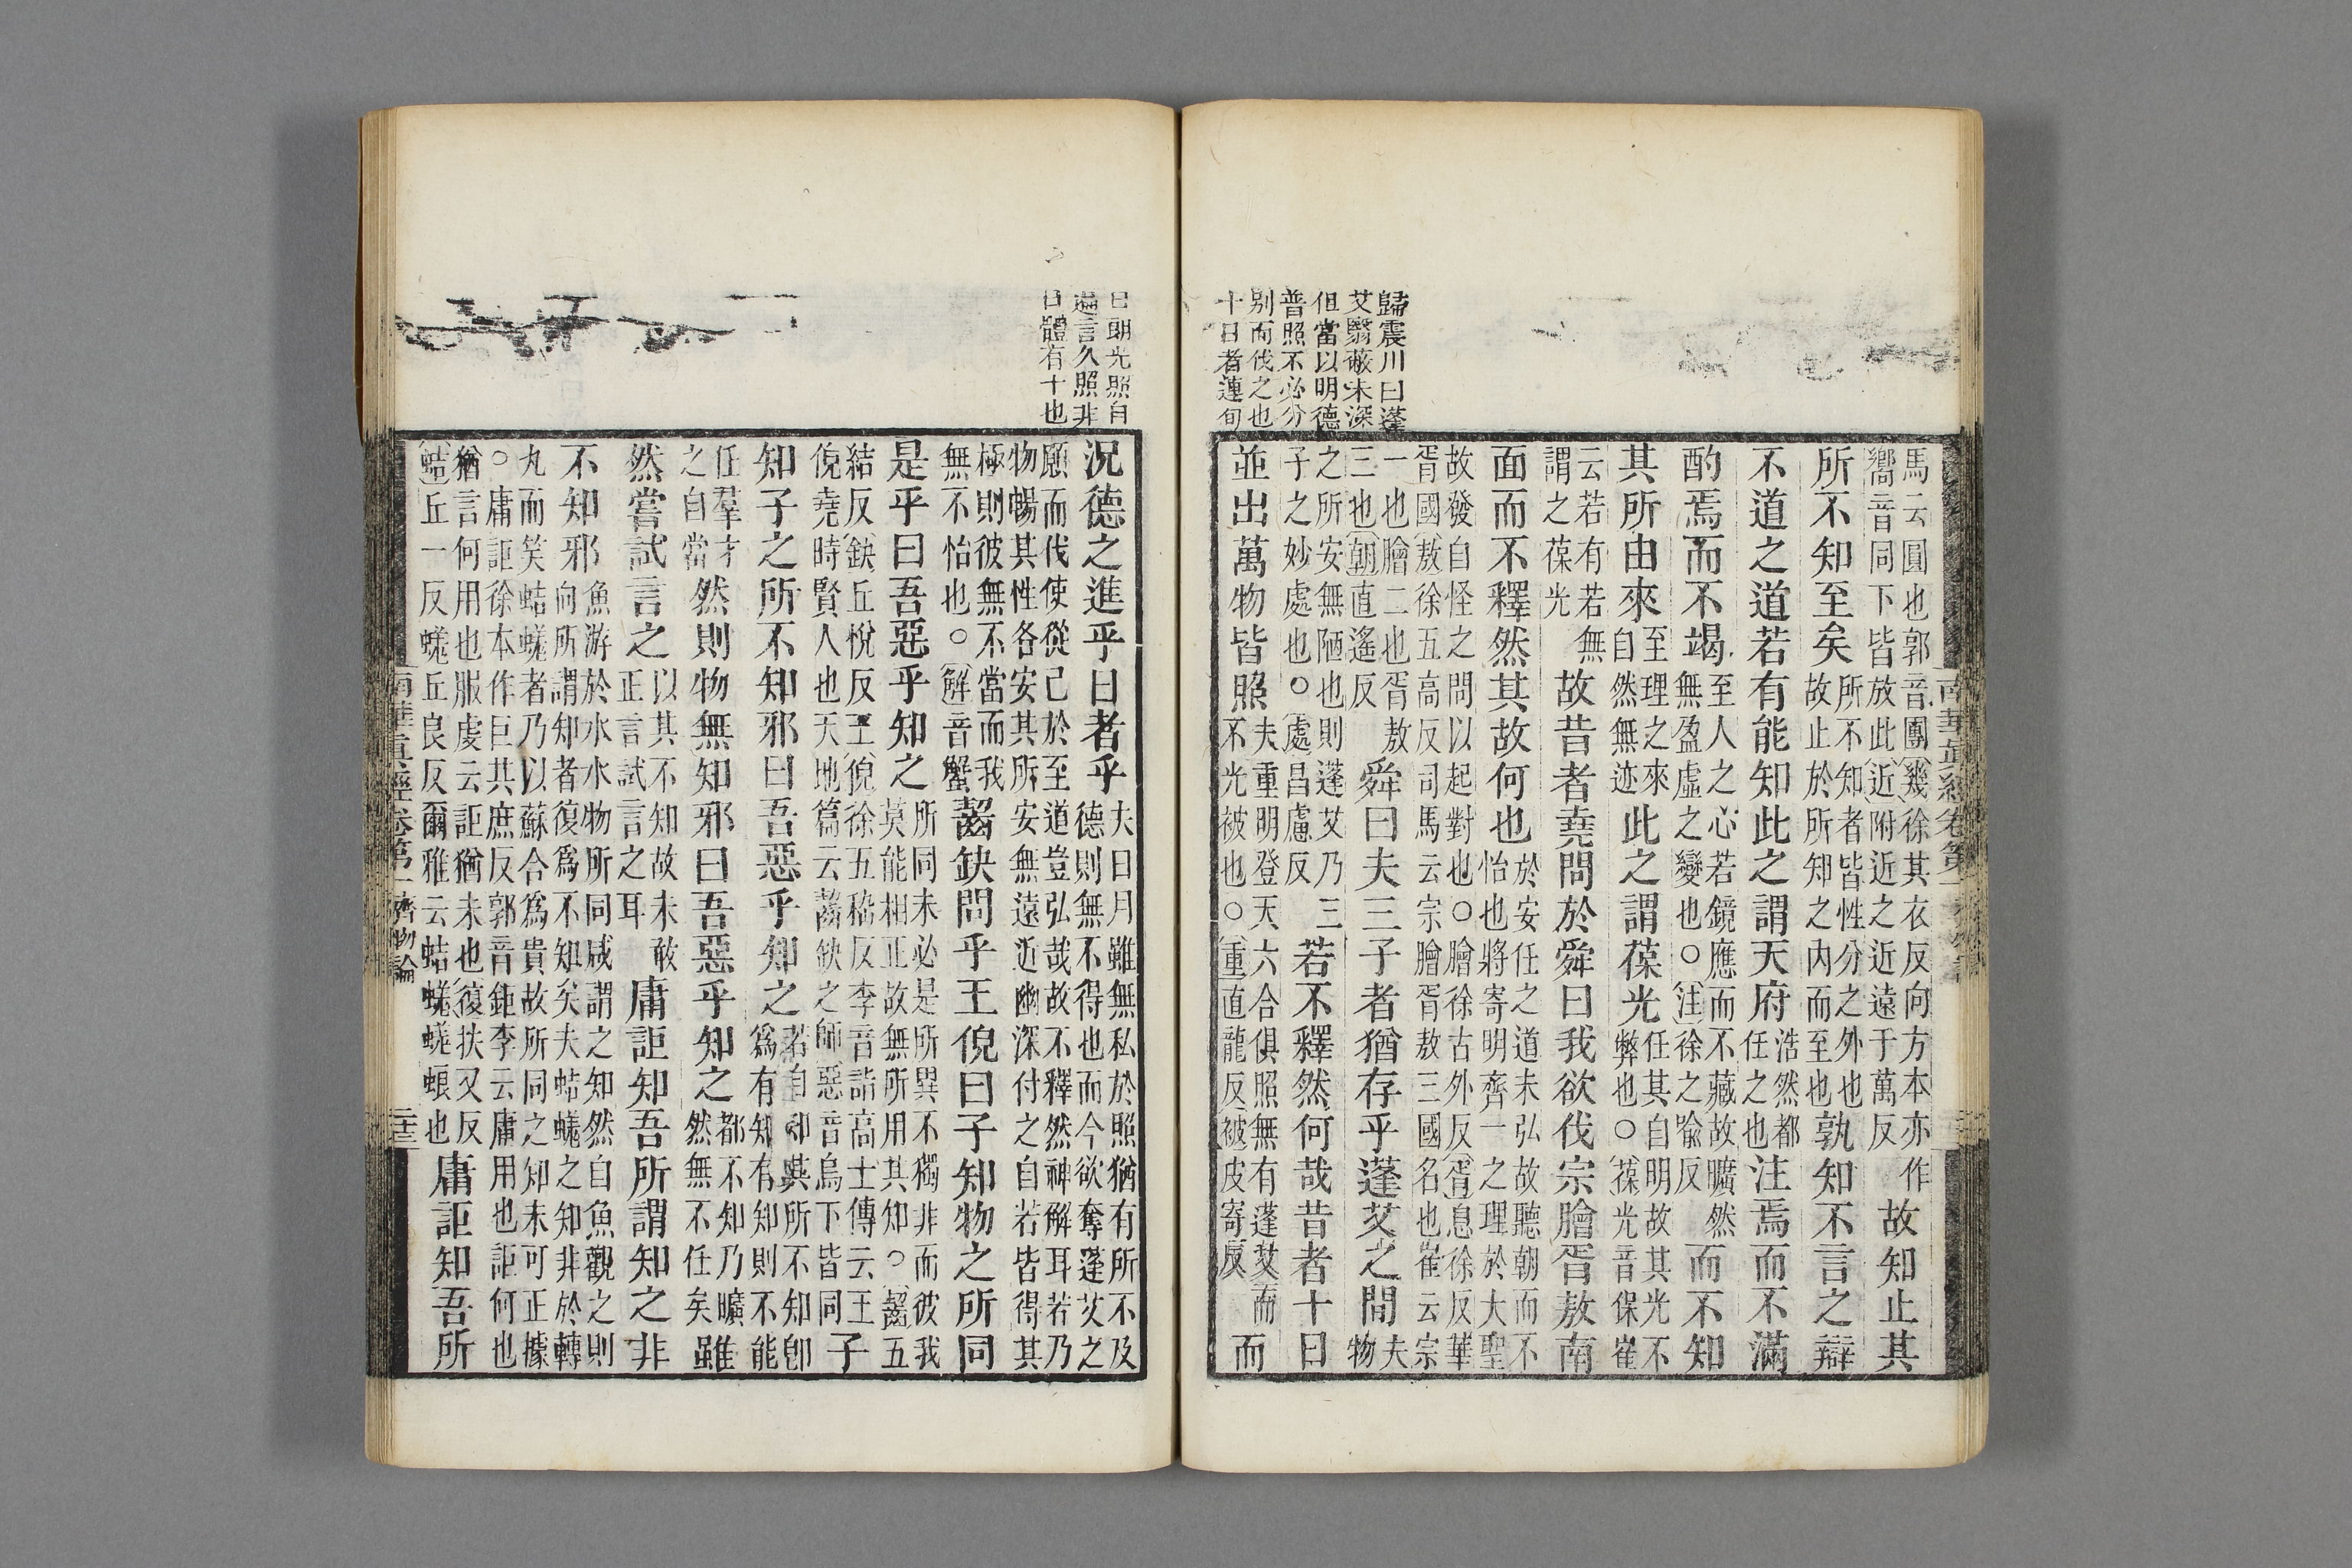 歸震川曰蓬
艾翳蔽未深
但當以明德
普照不必分
别而伐之也
十日者連旬
馬云圓也郭音團幾徐其衣反向方本亦作
嚮音同下皆放此近附近之近遠于萬反
故知止其
所不知至矣
所不知者皆性分之外也
故止於所知之內而至也
孰知不言之辯
不道之道若有能知此之謂天府
浩然都
任之也
注焉而不滿
酌焉而不竭
至人之心若鏡應而不藏故曠然
無盈虛之變也○注徐之喻反
而不知
其所由來
至理之來
自然無迹
此之謂葆光
任其自明故其光不
弊也○葆光音保崔
云若有若無
謂之葆光
故昔者堯問於舜曰我欲伐宗膾胥敖南
面而不釋然其故何也
於安任之道未弘故聽朝而不
怡也將寄明齊一之理於大聖
故發自怪之問以起對也○膾徐古外反胥息徐反華
胥國敖徐五高反司馬云宗膾胥敖三國名也崔云宗
一也膾二也胥敖
三也朝直遙反
舜曰夫三子者猶存乎蓬艾之間
夫
物
之所安無陋也則蓬艾乃三
子之妙處也○處昌慮反
若不釋然何哉昔者十日
並出萬物皆照
夫重明登天六合俱照無有蓬艾而
不光被也○重直龍反被皮寄反
而
日朗光照自
遍言久照非
日體有十也
況德之進乎日者乎
夫日月雖無私於照猶有所不及
德則無不得也而今欲奪蓬艾之
願而伐使從己於至道豈弘哉故不釋然神解耳若乃
物暢其性各安其所安無遠近幽深付之自若皆得其
極則彼無不當而我
無不怡也○解音蟹
齧缺問乎王倪曰子知物之所同
是乎曰吾惡乎知之
所同未必是所異不獨非而彼我
莫能相正故無所用其知○齧五
結反缺丘悅反王倪徐五嵇反李音詣高士傳云王
倪堯時賢人也天地篇云齧缺之師惡音烏下皆同
子
知子之所不知邪曰吾惡乎知之
若自知其所不知即
爲有知有知則不能
任羣才
之自當
然則物無知邪曰吾惡乎知之
都不知乃曠
然無不任矣
雖
然嘗試言之
以其不知故未敢
正言試言之耳
庸詎知吾所謂知之非
不知邪
魚游於水水物所同咸謂之知然自魚觀之則
向所謂知者復爲不知矣夫蛣蜣之知非於轉
丸而笑蛣蜣者乃以蘇合爲貴故所同之知未可正據
○庸詎徐本作巨其庶反郭音鉅李云庸用也詎何也
猶言何用也服虔云詎猶未也復扶又反
蛣丘一反蜣丘良反爾雅云蛣蜣蜣蜋也
庸詎知吾所
南華真經卷第一 齊物論